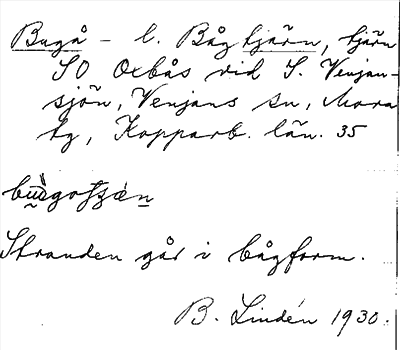 Bugå - l. Bågtjärn, tjärn
SO Oxbås vid S. Venjan-
sjön, Venjans sn, Mora
tg, Kopparb. län. 35
Stranden går i bågform.
B. Lindén 1930.